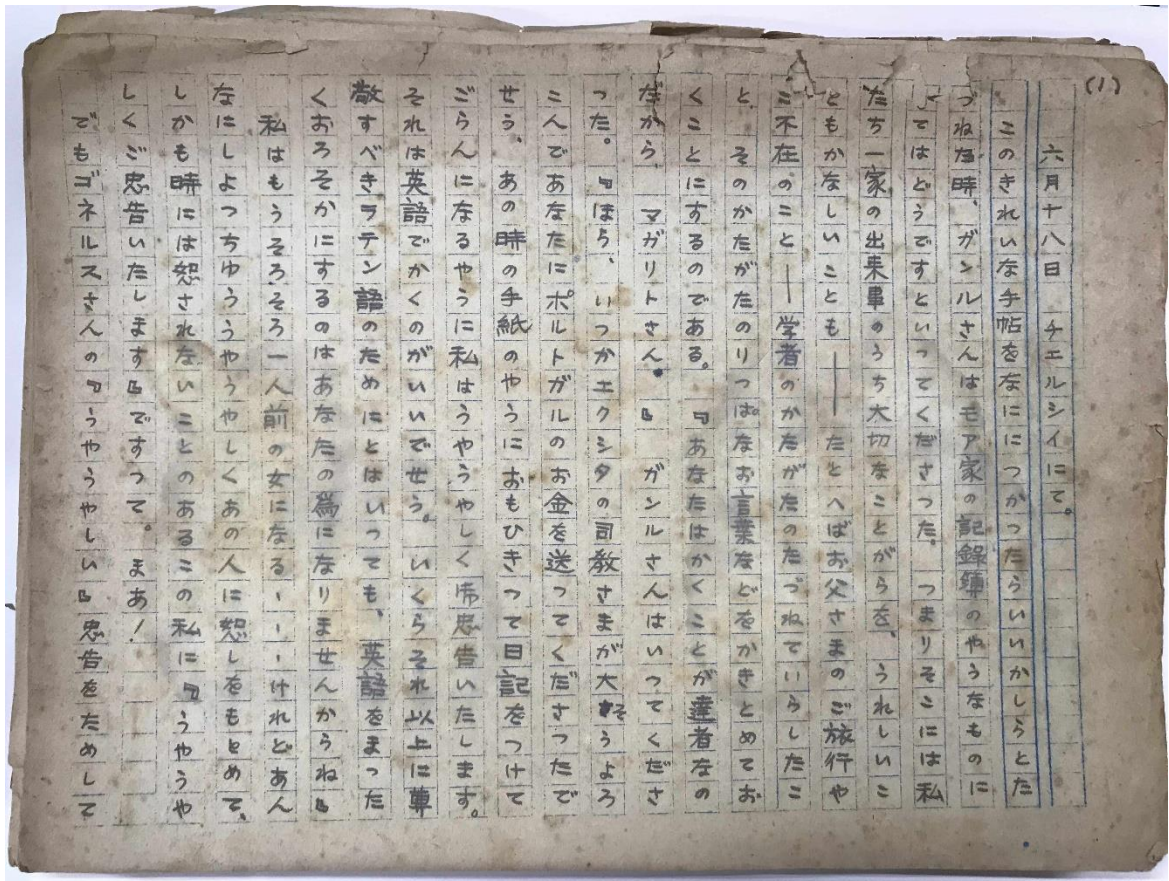 (1)
六月十八日 チエルシイにて。
このきれいな手帖をなににつかつたらいいかしらとた
づねた時、ガンルさんはモア家の記録簿のやうなものに
してはどうですといつてくださつた。 つまりそこには私
たち一家の出来事のうち大切なことがらを、うれしいこ
ともかなしいことも――たとへばお父さまのご旅行や
ご不在のこと――学者のかたがたのたづねていらしたこ
と、そのかたがたのりつぱなお言葉などをかきとめてお
くことにするのである。『あなたはかくことが達者なの
だから、マガリトさん。』 ガンルさんはいつてくださ
つた。『ほら、いつかエクシタの司教さまが大そうよろ
こんであなたにポルトガルのお金を送つてくださつたで
せう、あの時の手紙のやうにおもひきつて日記をつけて
ごらんになるやうに私はうやうやしく御忠告いたします。
それは英語でかくのがいいでせう。いくらそれ以上に尊
敬すべきラテン語のためにとはいつても、英語をまつた
くおろそかにするのはあなたの為になりませんからね』
私はもうそろそろ一人前の女になる---けれどあん
なにしよつちゆううやうやしくあの人に恕しをもとめて、
しかも時には恕されないことのあるこの私に『うやうや
しくご忠告いたします』ですつて。 まあ!
でもゴネルスさんの『うやうやしい』忠告をためして